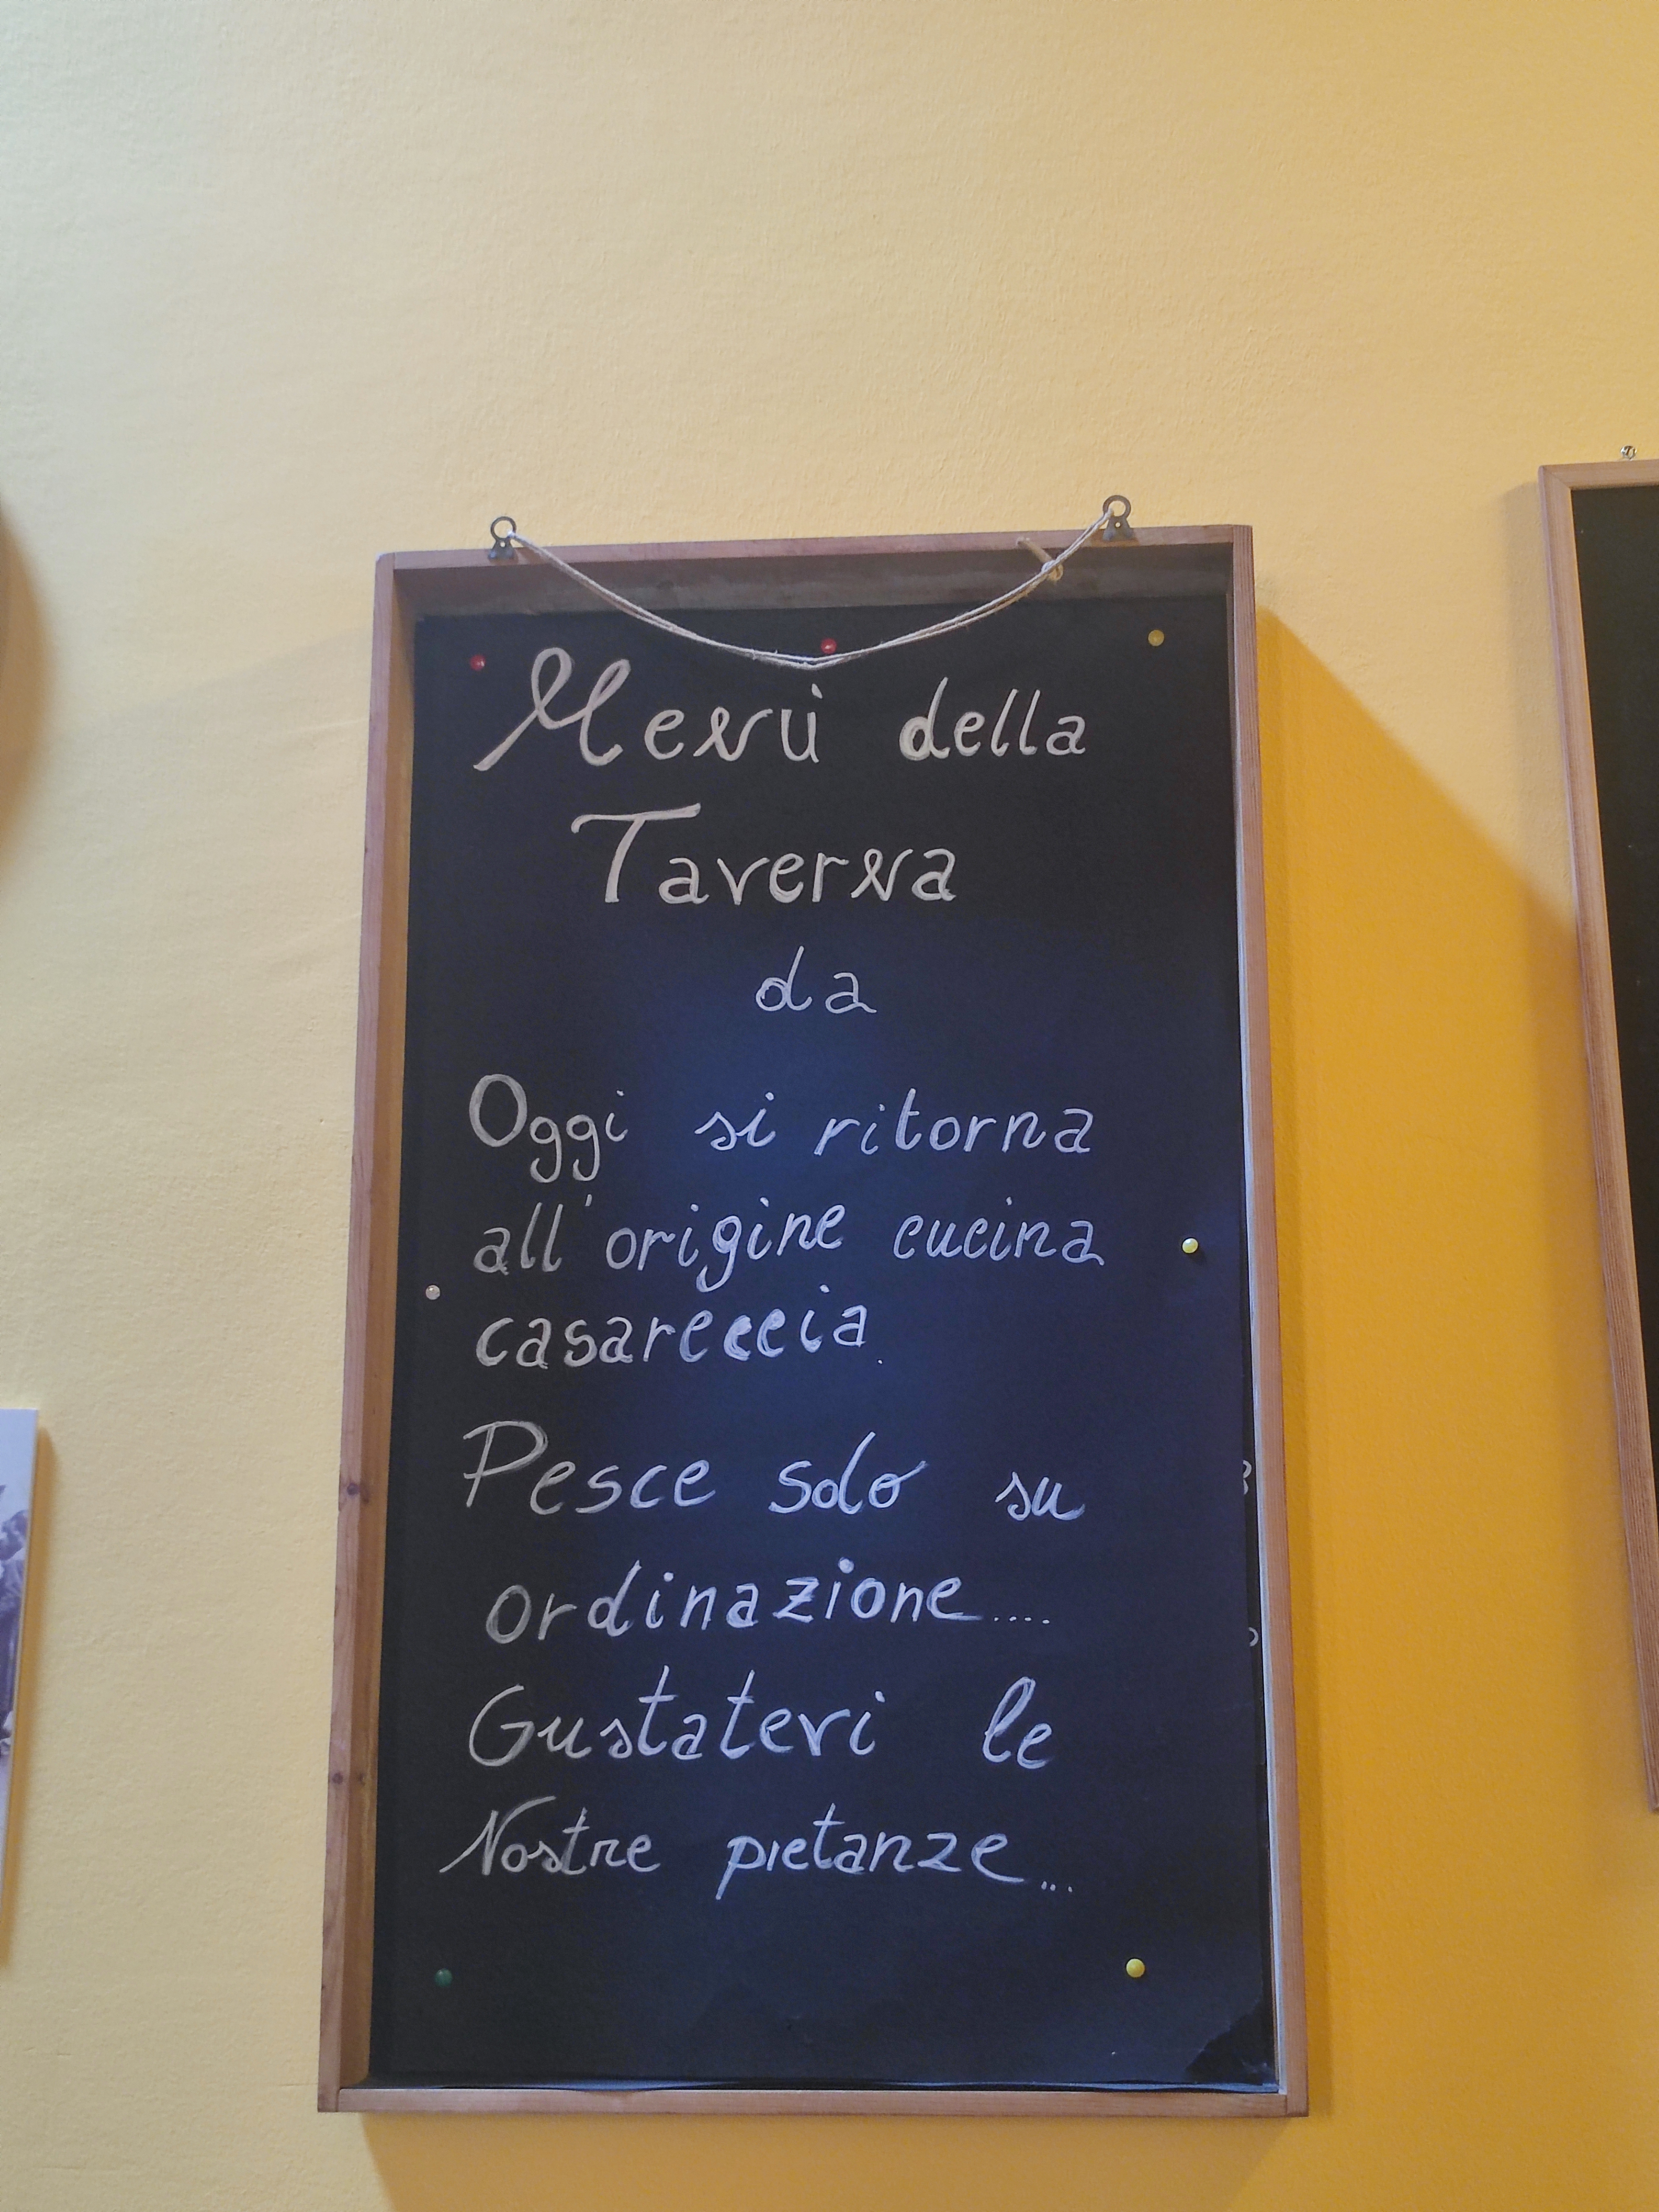 Menù della
Taverna
da
Oggi si ritorna
all'origine cucina
casareccia.
Pesce solo su
ordinazione....
Gustatevi le
Nostre pietanze...